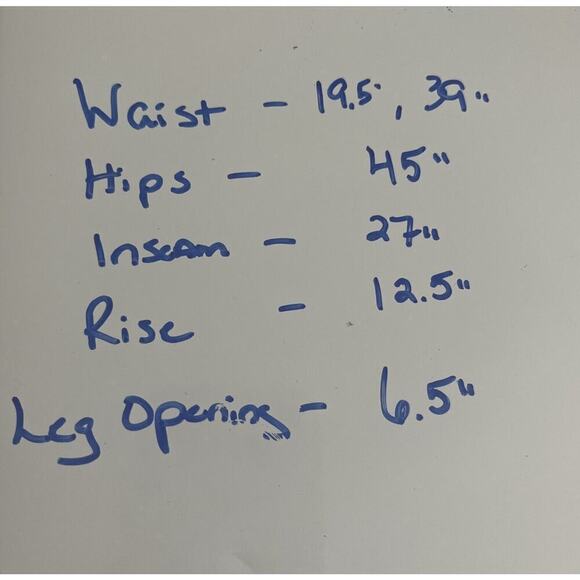 Waist - 19.5, 39"
Hips - 45"
Inseam - 27"
Rise - 12.5"
Leg Opening - 6.5"